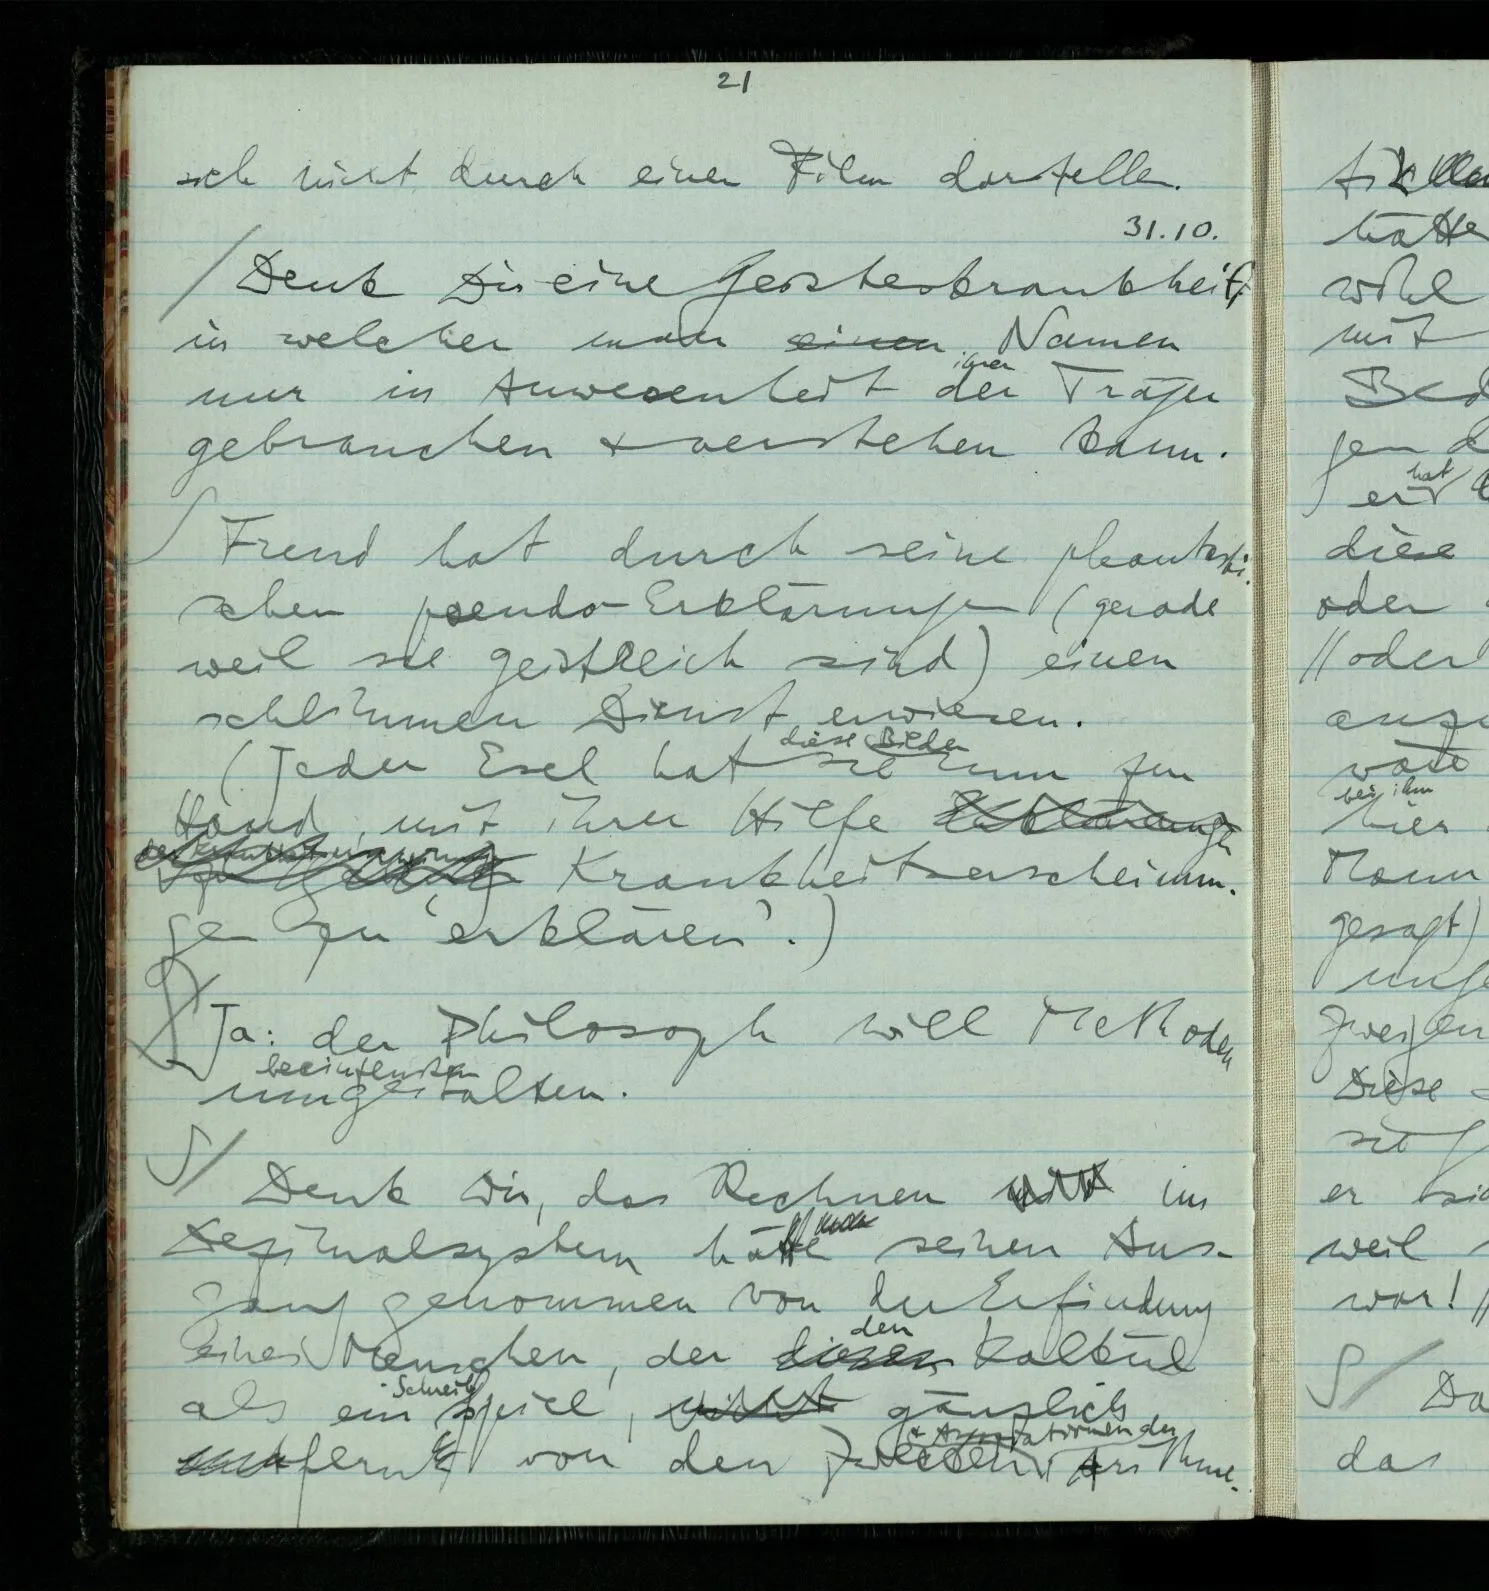 21
sich nicht durch einen Film darstellen.
31.10.
/ Denk Dir eine Geisteskrankheit,
in welcher man einen Namen
ihrer
nur in Anwesenheit der Träger
gebrauchen & verstehen kann.
Freud hat durch seine phantasti-
schen pseudo-Erklärungen (gerade
weil sie geistreich sind) einen
schlimmen Dienst erwiesen.
diese Bilder
(Jeder Esel hat sie nun zur
Hand, mit ihrer Hilfe Erklärungen
Krankheitserscheinun-
gen zu 'erklären'.)
Ja: der Philosoph will Methoden
beeinflussen
umgestalten.
S/ Denk Dir, das Rechnen mit im
Dezimalsystem hätte seinen Aus-
gang genommen von der Erfindung
den
eines Menschen, der diesen Kalkül
Schreib
als ein Spiel, nicht gänzlich
der
fernt von den Zwecken Arithme-
hätte
wohl
mit
hat
er
diese
oder
//oder
wäre
bei ihm
hier
Mann
gesagt)
zweifen
Diese
er
weil
war! //
S/ Da
das